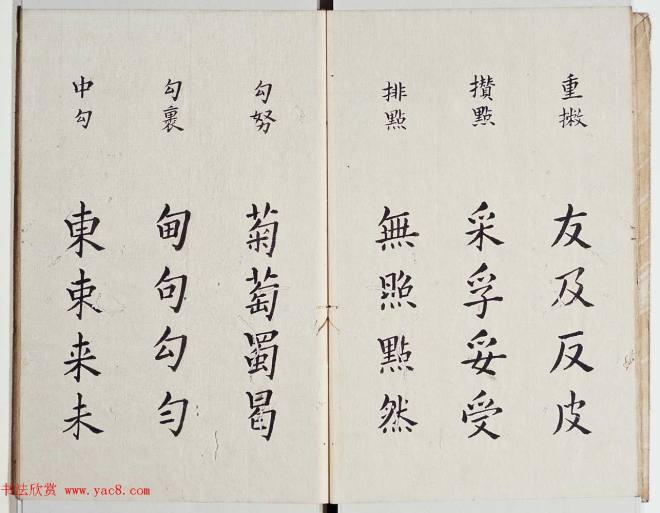 重撇
友及反皮
攢點
采孚妥受
排點
無照點然
勾努
菊萄蜀曷
勾裏
甸句勾勻
中勾
東柬来未
书法欣赏 www.yac8.com